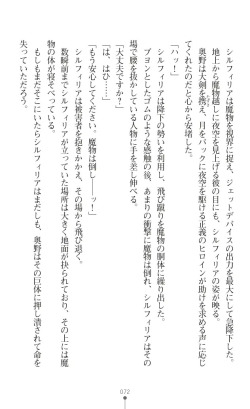 シルフィリアは魔物を視界に捉え、ジェットデバイスの出力を最大にして急降下した。
地上から魔物越しに夜空を見上げる彼の目にも、シルフィリアの姿が映る。
奥野は大剣を携え、月をバックに夜空を駆ける正義のヒロインが助けを求める声に応じ
てくれたのだと心から安堵した。
「ハッ！」
シルフィリアは降下の勢いを利用し、飛び蹴りを魔物の胴体に繰り出した。
ブヨンとしたゴムのような感触の後、あまりの衝撃に魔物は倒れ、シルフィリアはその
場で腰を抜かしている人物に手を差し伸べる。
「大丈夫ですか？」
「は、はひ……」
「もう安心してください。魔物は倒し――ッ！」
シルフィリアは被害者を抱きかかえ、その場から飛び退く。
数瞬前までシルフィリアが立っていた場所は大きく地面が抉られており、その上には魔
物の体が寝そべっている。
もしもまだそこにいたらシルフィリアはまだしも、奥野はその巨体に押し潰されて命を
失っていただろう。
072